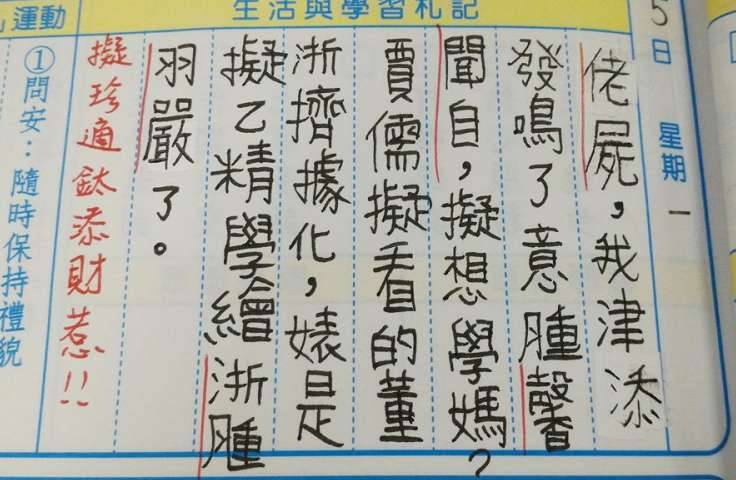 5日 星期一
生活與學習札記
佬屍，我津添
發鳴了意腫馨
聞自，擬想學媽？
賈儒擬看的董
浙擠據化，婊是
擬乙精學繪浙腫
羽嚴了。
擬珍適鈦添財惹!!
運動
①問安：隨時保持禮貌